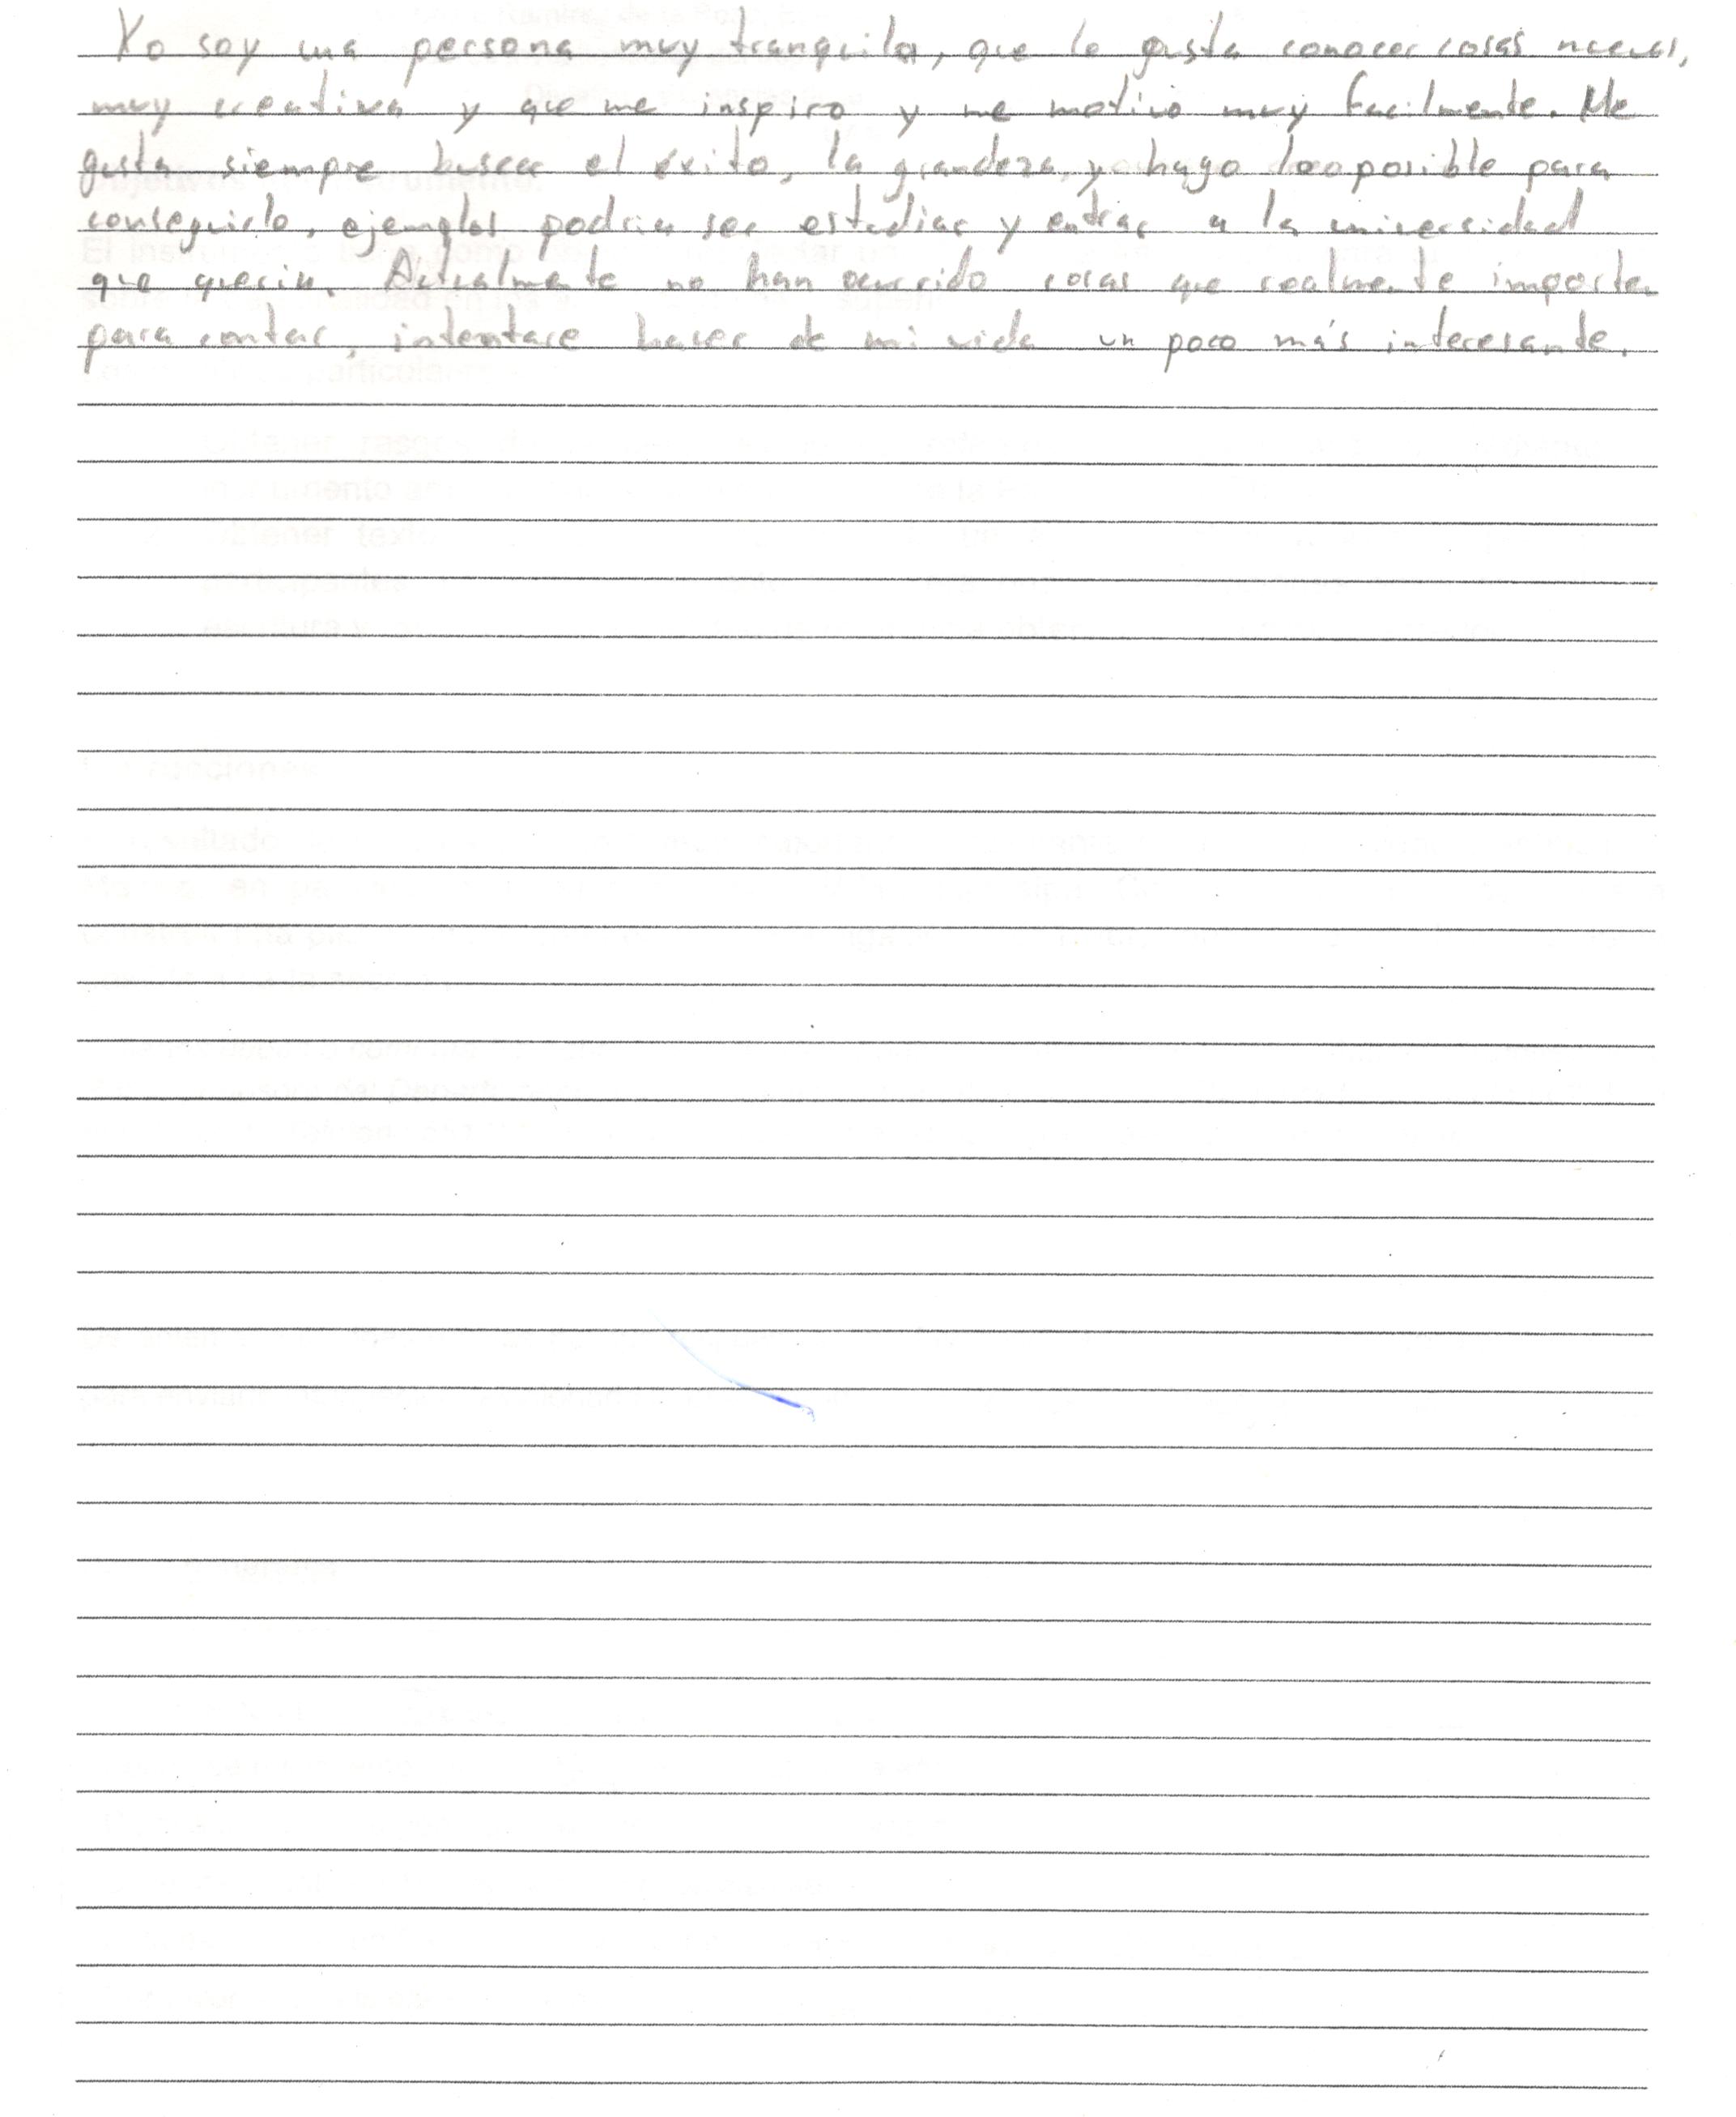 Yo soy una persona muy tranquila, que le gusta conocer cosas nuevas,
muy creativa y que me inspiro y me motivo muy facilmente. Me
gusta siempre buscar el éxito, la grandeza, y hago lo posible para
conseguirlo, ejemplos podria ser estudiar y entrar a la universidad
que queria. Actualmente no han ocurrido cosas que realmente importen
para contar, intentare hacer de mi vida un poco más interesante.